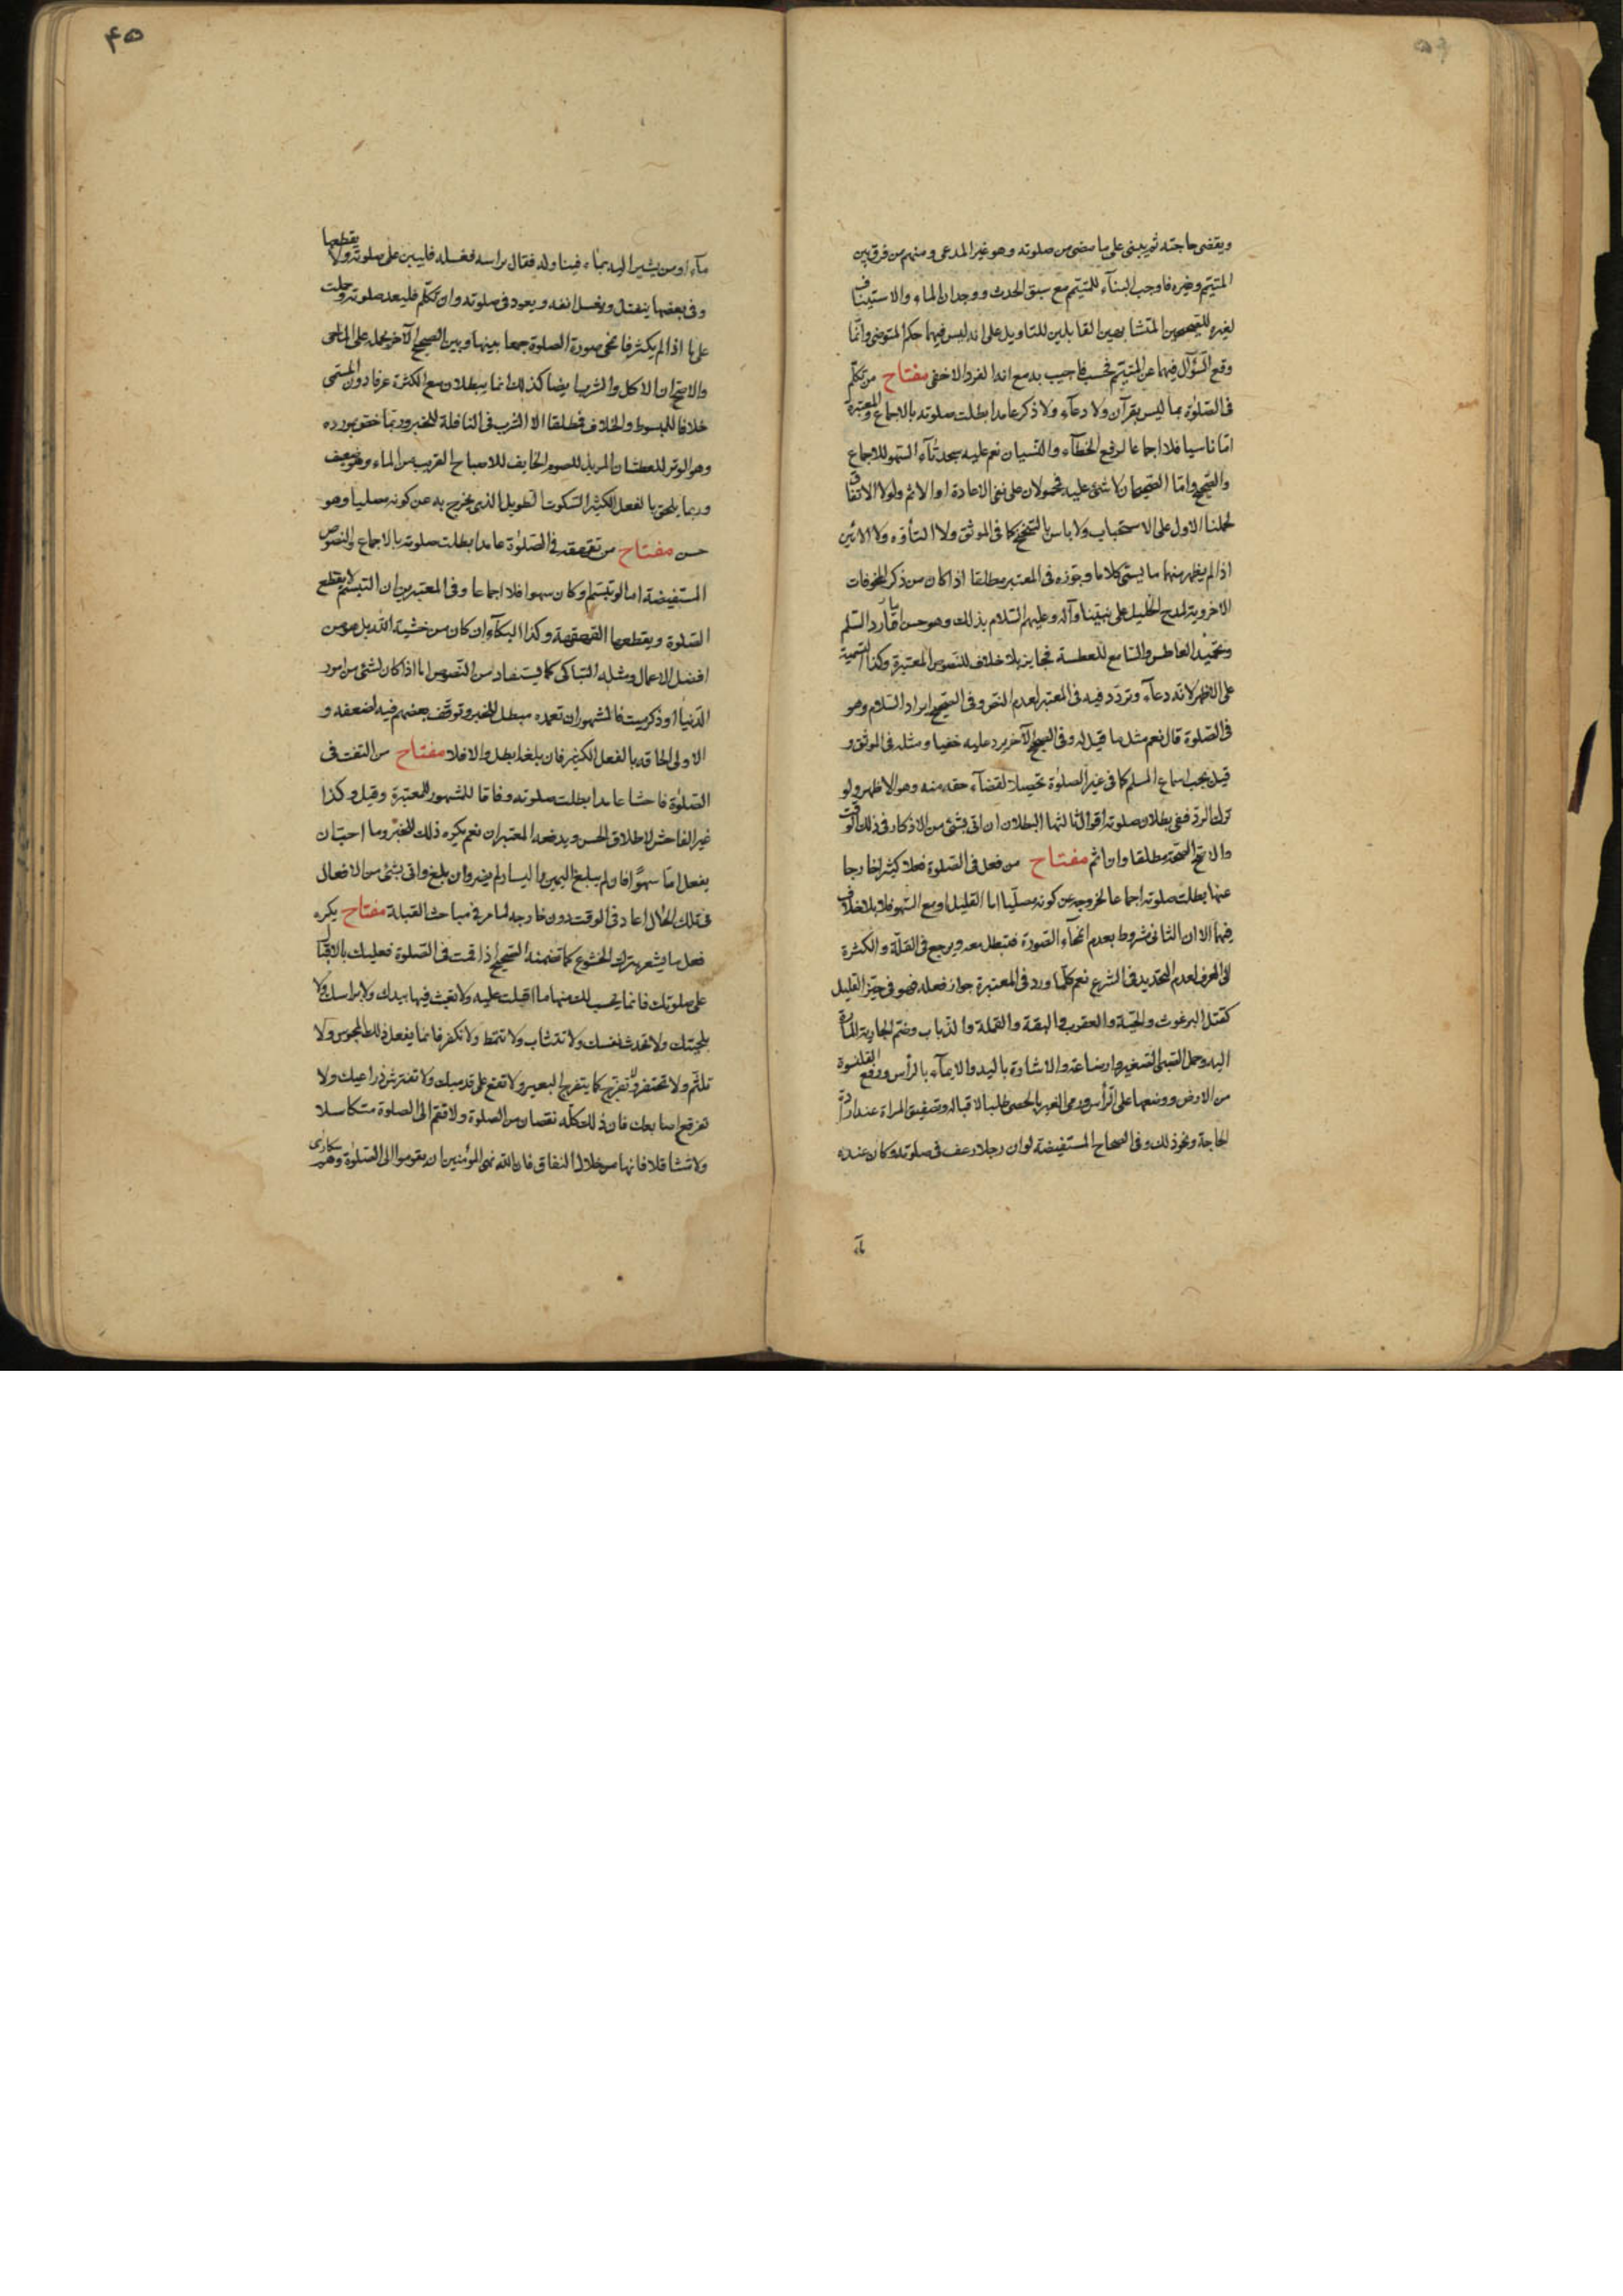 ويقضى حاجته ثم يبنى على ما مضى من صلوته وهو غير المدعى ومنهم من فرق بين
المتيمم وغيره فاوجب البناء للمتيمم مع سبق الحدث ووجدان الماء والاستيناف
لغيره للصحيحين المتشابهين القابلين للتاويل على انه ليس فيهما حكم المتوضى وانما
وقع السؤال فيهما عن المتيمم فحسب فاجيب به مع اندا لفرد الاخفى مفتاح من تكلم
فى الصلوة بما ليس بقرآن ولا دعاء ولا ذكر عامدا بطلت صلوته بالاجماع والمعتبرة
امّا ناسيا فلا اجماعا لرفع الخطاء والنسيان نعم عليه سجدتا السهو للاجماع
والصحيح وامّا الصحيحان لا شئ عليه فمحمولان على نفى الاعادة او الاثم ولولا الاتفاق
لحملنا الاول على الاستحباب ولا باس بالتنحنح كما فى الموثق ولا التأوه ولا الانين
اذا لم يظهر منهما ما يسمّى كلاما وجوزه فى المعتبر مطلقا اذا كان من ذكر المخوفات
الاخروية لمدح الخليل على نبينا وآله وعليهم السلام بذلك وهو حسن امّا رد السلم
وتحميد العاطس والسامع للعطسة فجايز بلا خلاف للنصوص المعتبرة وكذا التسمية
على الاظهر لانه دعاء وتردد فيه فى المعتبر لعدم النص وفى الصحيح ايراد السلام وهو
فى الصلوة قال نعم مثل ما قيل له وفى الصحيح الآخر يرد عليه خفيا ومثله فى الموثق و
قيل يجب اسماع المسلم كما فى غير الصلوة تحصيلا لقضاء حقه منه وهو الاظهر ولو
ترك الرد ففى بطلان صلوته اقوال ثالثها البطلان ان اتى بشئ من الاذكار فى ذلك الوقت
والاصح الصحة مطلقا وان اثم مفتاح من فعل فى الصلوة فعلا كثيرا خارجا
عنها بطلت صلوته اجماعا لخروجه عن كونه مصليا اما القليل او مع السهو فلا بلا خلاف
فيهما الا ان الثانى مشروط بعدم انمحاء الصورة فتبطل معه ويرجع فى القلة والكثرة
الى العرف لعدم التحديد فى الشرع نعم كلما ورد فى المعتبرة جواز فعله فهو فى حيز القليل
كقتل البرغوث والحية والعقرب والبقة والقملة والذباب وضم الجارية المارة
اليه وحمل الصبى الصغير وارضاعه والاشارة باليد والايماء بالرأس ورفع القلنسوة
من الارض ووضعها على الرأس ورمى الغير بالحصى طلبا لاقباله وتصفيق المراة عند ارادة
الحاجة ونحو ذلك وفى الصحاح المستفيضة لو ان رجلا رعف فى صلوته وكان عنده
ماء
۴۵
ماء او من يشير اليه بماء فيناوله فقال براسه فغسله فليبن على صلوته ولا يقطعها
وفى بعضها ينفتل ويغسل انفه ويعود فى صلوته وان تكلّم فليعد صلوته وحملت
على ما اذا لم يكثر فانمحى صورة الصلوة جمعا بينها وبين الصحيح الآخر بحمله على الماحى
والاصح ان الاكل والشرب ايضا كذلك انما يبطلان مع الكثرة عرفا دون المسمى
خلافا للمبسوط والخلاف فمطلقا الا الشرب فى النافلة للخبر وربما خص بمورده
وهو الوتر للعطشان المريد للصوم الخايف للاصباح القريب من الماء وهو ضعيف
وربما يلحق بالفعل الكثير السكوت الطويل الذى يخرج به عن كونه مصليا وهو
حسن مفتاح من تقهقه فى الصلوة عامدا بطلت صلوته بالاجماع والنصوص
المستفيضة اما لو تبسّم وكان سهوا فلا اجماعا وفى المعتبرين ان التبسّم لا يقطع
الصلوة ويقطعها القهقهة وكذا البكاء ان كان من خشية الله بل هو من
افضل الاعمال ومثله التباكى كما يستفاد من النصوص اما اذا كان لشئ من امور
الدنيا او ذكر ميت فالمشهور ان تعمده مبطل للخبر وتوقف بعضهم فيه لضعفه و
الاولى الحاقه بالفعل الكثير فان بلغه ابطل والا فلا مفتاح من التفت فى
الصلوة فاحشا عامدا بطلت صلوته وفاقا للمشهور للمعتبرة وقيل وكذا
غير الفاحش لاطلاق الحسن ويدفعه المعتبران نعم يكره ذلك للخبر وما احب ان
يفعل امّا سهوا فاولم يبلغ اليمين واليسار لم يضر وان بلغ واتى بشئ من الافعال
فى تلك الحال اعاد فى الوقت دون خارجه لما مر فى مباحث القبلة مفتاح يكره
فعل ما يشعر بترك الخشوع كما تضمنه الصحيح اذا قمت فى الصلوة فعليك بالاقبال
على صلوتك فانما يحسب لك منها ما اقبلت عليه ولا تعبث فيها بيدك ولا براسك ولا
بلحيتك ولا تحدث نفسك ولا تتثاب ولا تتمط ولا تكفر فانما يفعل ذلك المجوس ولا
تلثم ولا تحتفز ولا تفرج كما يتفرج البعير ولا تقع على قدميك ولا تفترش ذراعيك ولا
تفرقع اصابعك فان ذلك كله نقصان من الصلوة ولا تقم الى الصلوة متكاسلا
ولا متثاقلا فانها من خلال النفاق فان الله نهى المؤمنين ان يقوموا الى الصلوة وهم سكارى